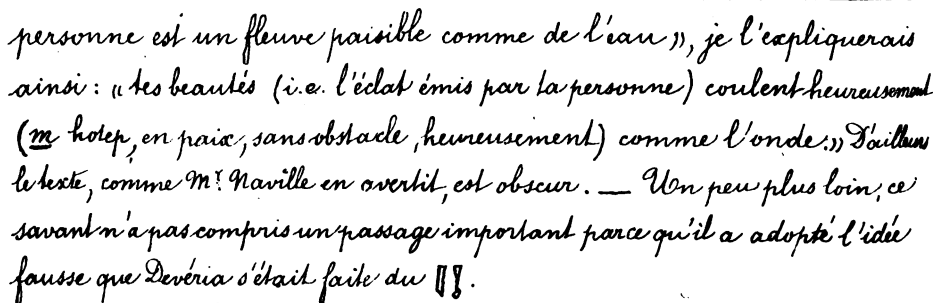 personne est un fleuve paisible comme de l'eau », je l'expliquerais
ainsi : « tes beautés (i.e. l'éclat émis par ta personne) coulent heureusement
(m hotep, en paix, sans obstacle, heureusement) comme l'onde. » D'ailleurs
le texte, comme Mr. Naville en avertit, est obscur. — Un peu plus loin, ce
savant n'a pas compris un passage important parce qu'il a adopté l'idée
fausse que Devéria s'était faite du